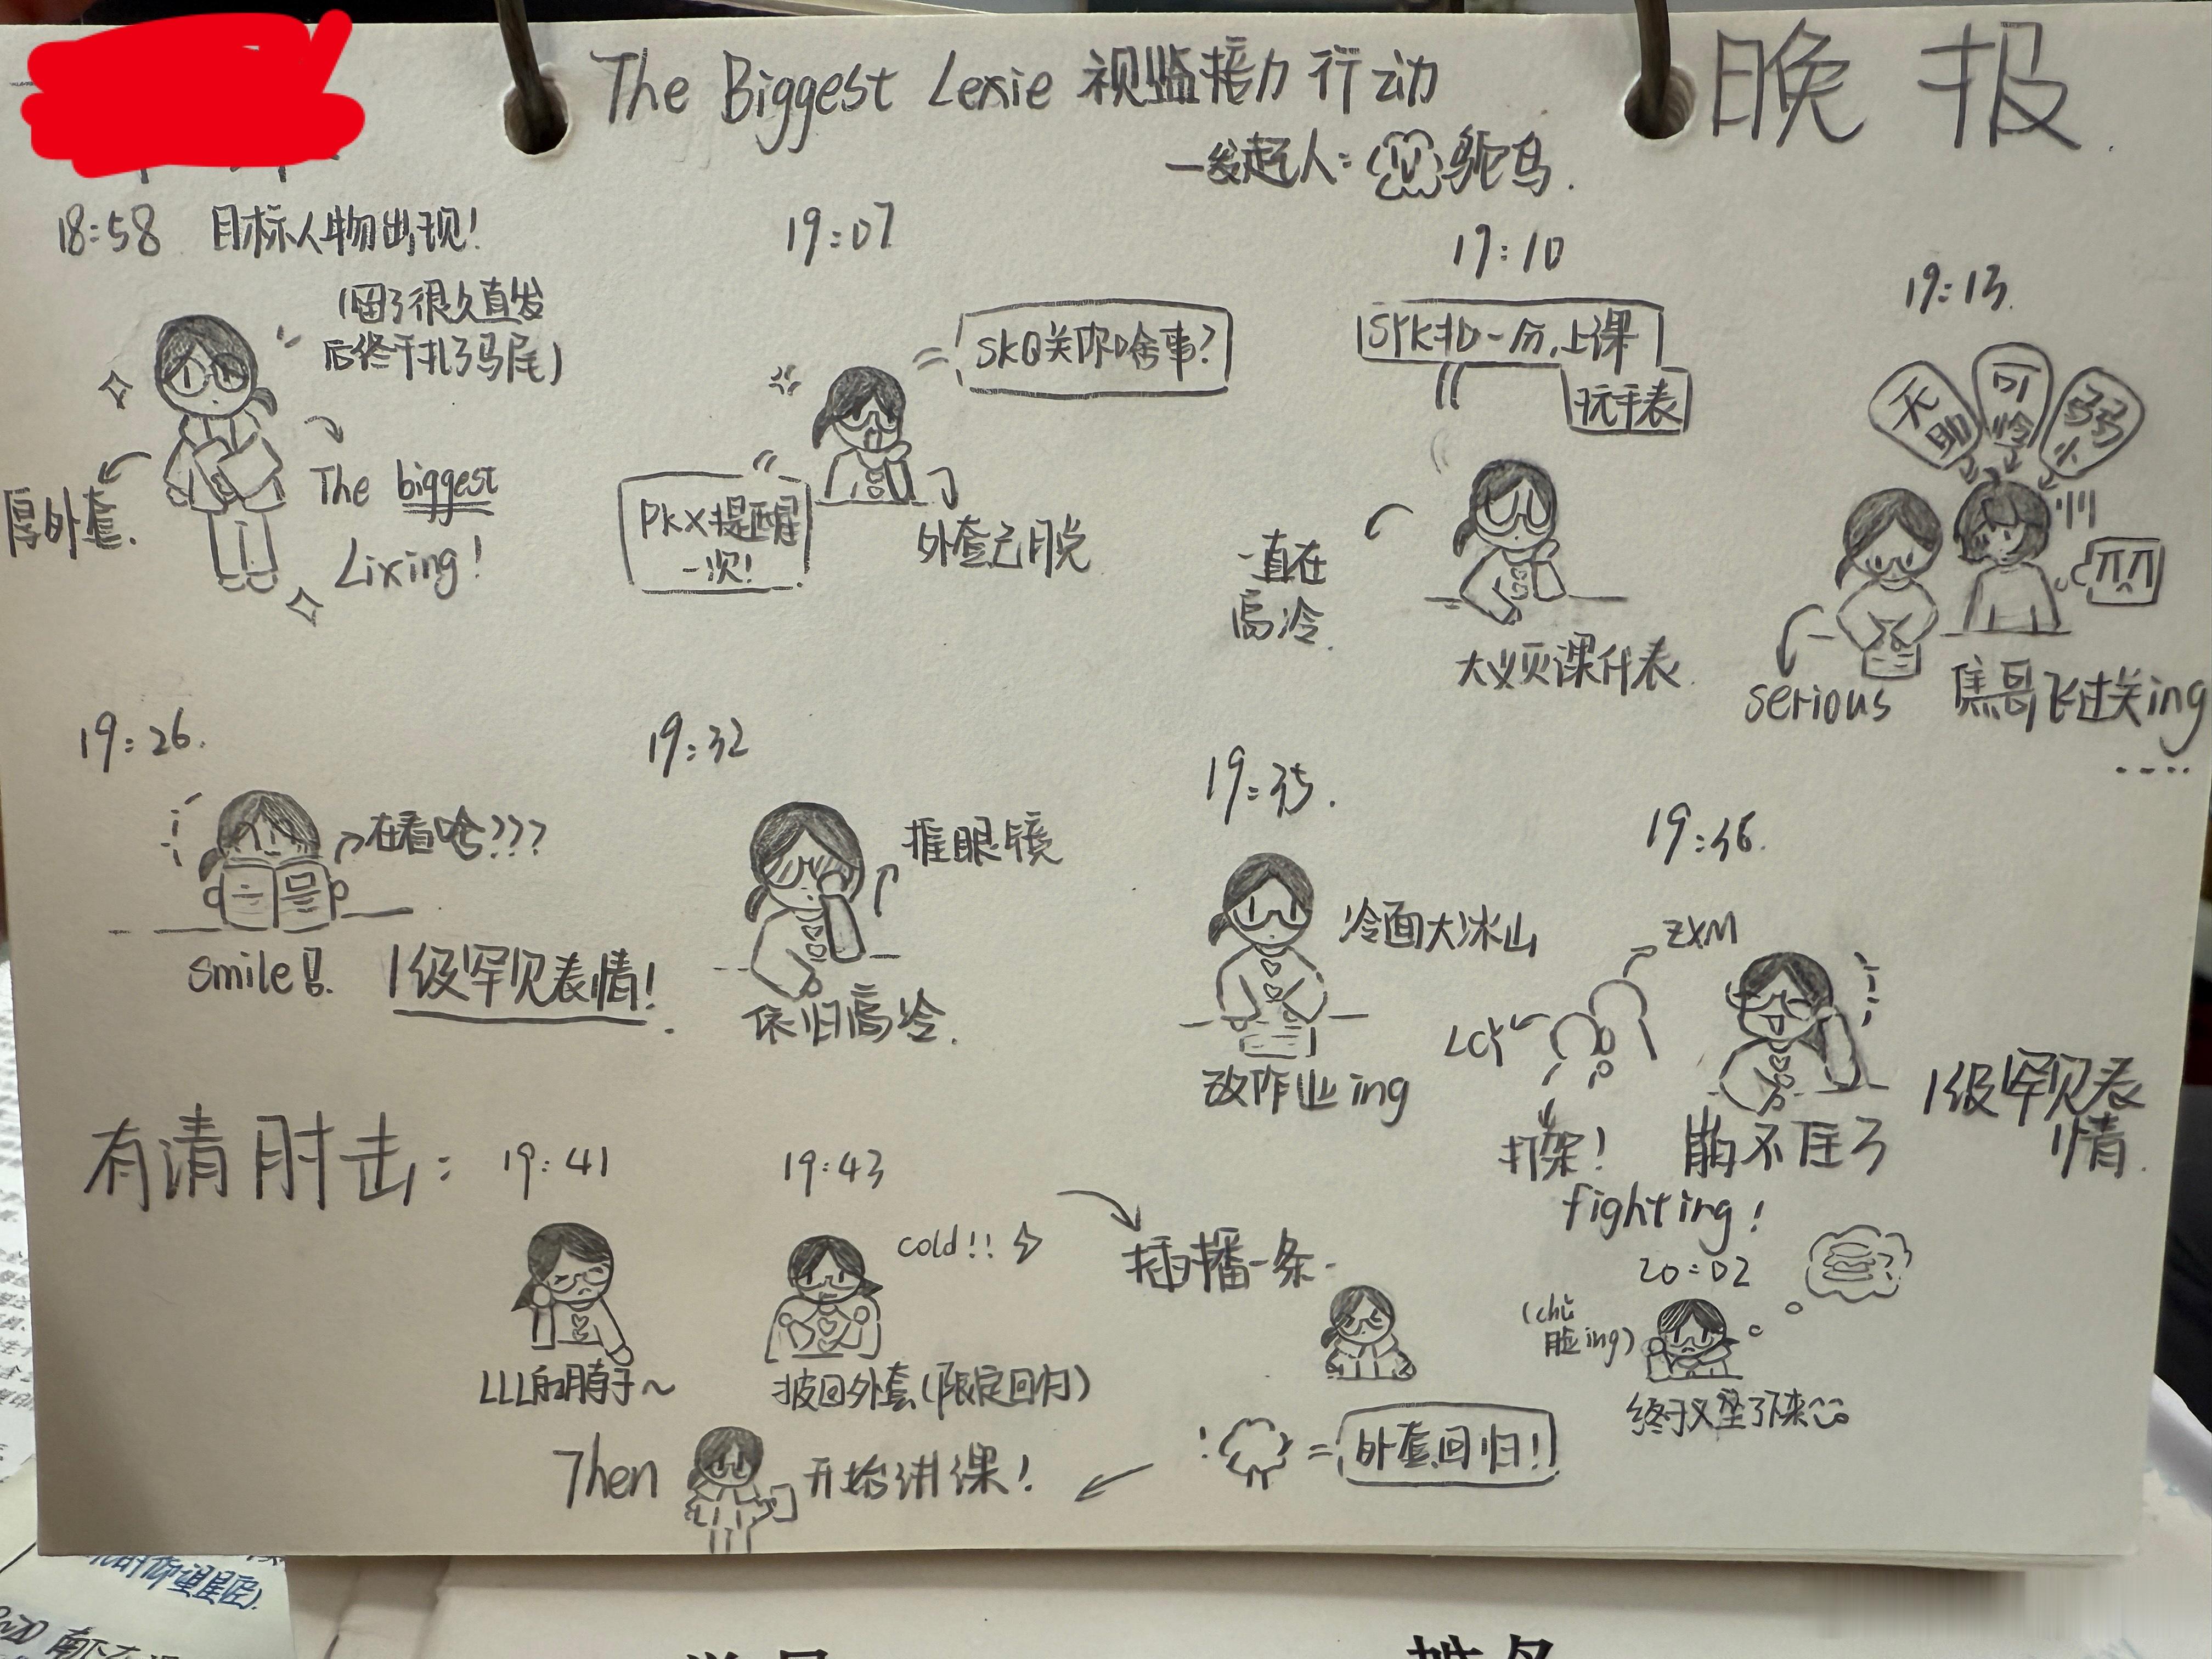 The Biggest Lexie 视监接力行动
晚报
—发起人: 鸵鸟.
18:58 目标人物出现!
(留了很久直发
后终于扎了马尾)
厚外套.
The biggest
Lixing!
19:07
SKQ关你啥事?
PKX提醒
一次!
外套已脱
19:10
SYK扣一分,上课
玩手表
一直在
高冷.
19:13.
无助
可怜
弱小
serious
焦哥飞过关ing
....
19:26.
在看啥???
smile!!
1级罕见表情!
19:32
推眼镜
依旧高冷.
19:35.
冷面大冰山
改作业ing
19:36.
ZXM
打架!
fighting!
崩不住了
1级罕见表
情.
有清肘击:
19:41
LLL的脖子~
19:43
cold!!
披回外套(限定回归)
插播一条-
! = 外套回归!
20:02
(chǔ
脸ing)
终于又坐了下来
Then 开始讲课!
仰望星空).
姓名